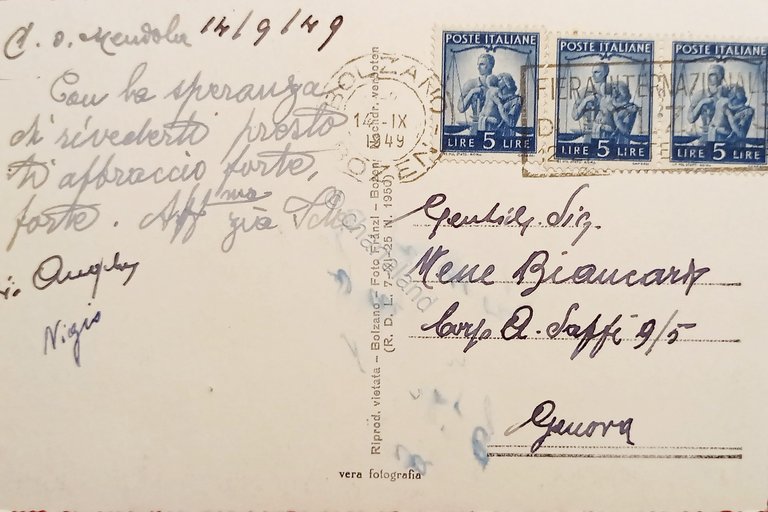 C. o. Mendola 14/9/49
Con la speranza
di rivederti presto
ti abbraccio forte,
forte. Aff ma zia
Nigio
vera fotografia
Riprod. vietata – Bolzano – Foto Fränzl – Bozen Nachdr. verboten
(R. D. L. 7-XI-25 N. 1950)
BOLZANO
14 IX
1949
BOZEN
POSTE ITALIANE POSTE ITALIANE POSTE ITALIANE
FIERA INTERNAZIONALE
LIRE 5 LIRE LIRE 5 LIRE LIRE 5 LIRE
Gentil. Sig.
Nene Biancardi
Corso A. Saffi 9/5
Genova